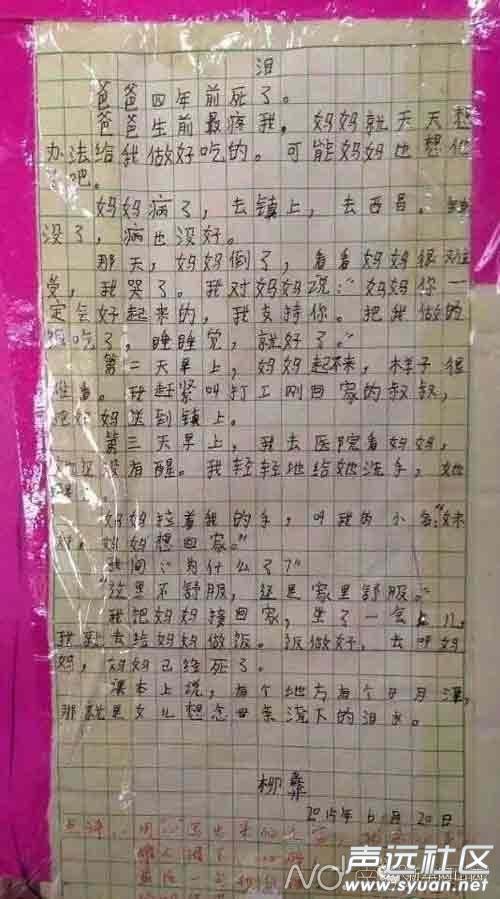 泪
爸爸四年前死了。
爸爸生前最疼我，妈妈就天天想
办法给我做好吃的。可能妈妈也想他
吧。
妈妈病了，去镇上，去西昌。
没了，病也没好。
那天，妈妈倒了，看看妈妈很难
受，我哭了。我对妈妈说：“妈妈你一
定会好起来的，我支持你。把我做的
饭吃了，睡睡觉，就好了。”
第二天早上，妈妈起不来，样子很
难看。我赶紧叫打工刚回家的叔叔，
把妈妈送到镇上。
第三天早上，我去医院看妈妈，
她还没有醒。我轻轻地给她洗手，她
妈妈拉着我的手，叫我的小名：“妹
妹，妈妈想回家。”
我问：“为什么了？”
“这里不舒服，还是家里舒服。”
我把妈妈接回家，坐了一会儿，
我就去给妈妈做饭。饭做好，去叫妈
妈，妈妈已经死了。
课本上说，有个地方有个日月潭，
那就是女儿想念母亲流下的泪水。
柳彝
2015年6月20日
声远社区
www.syuan.net